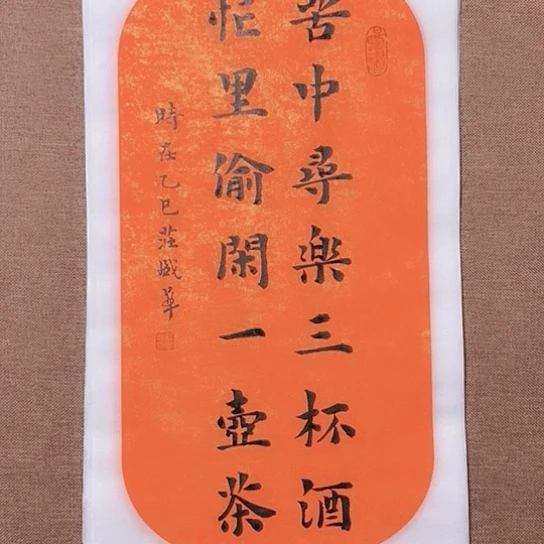 苦中尋樂三杯酒
忙里偷閑一壺茶
時在乙巳莊盛華